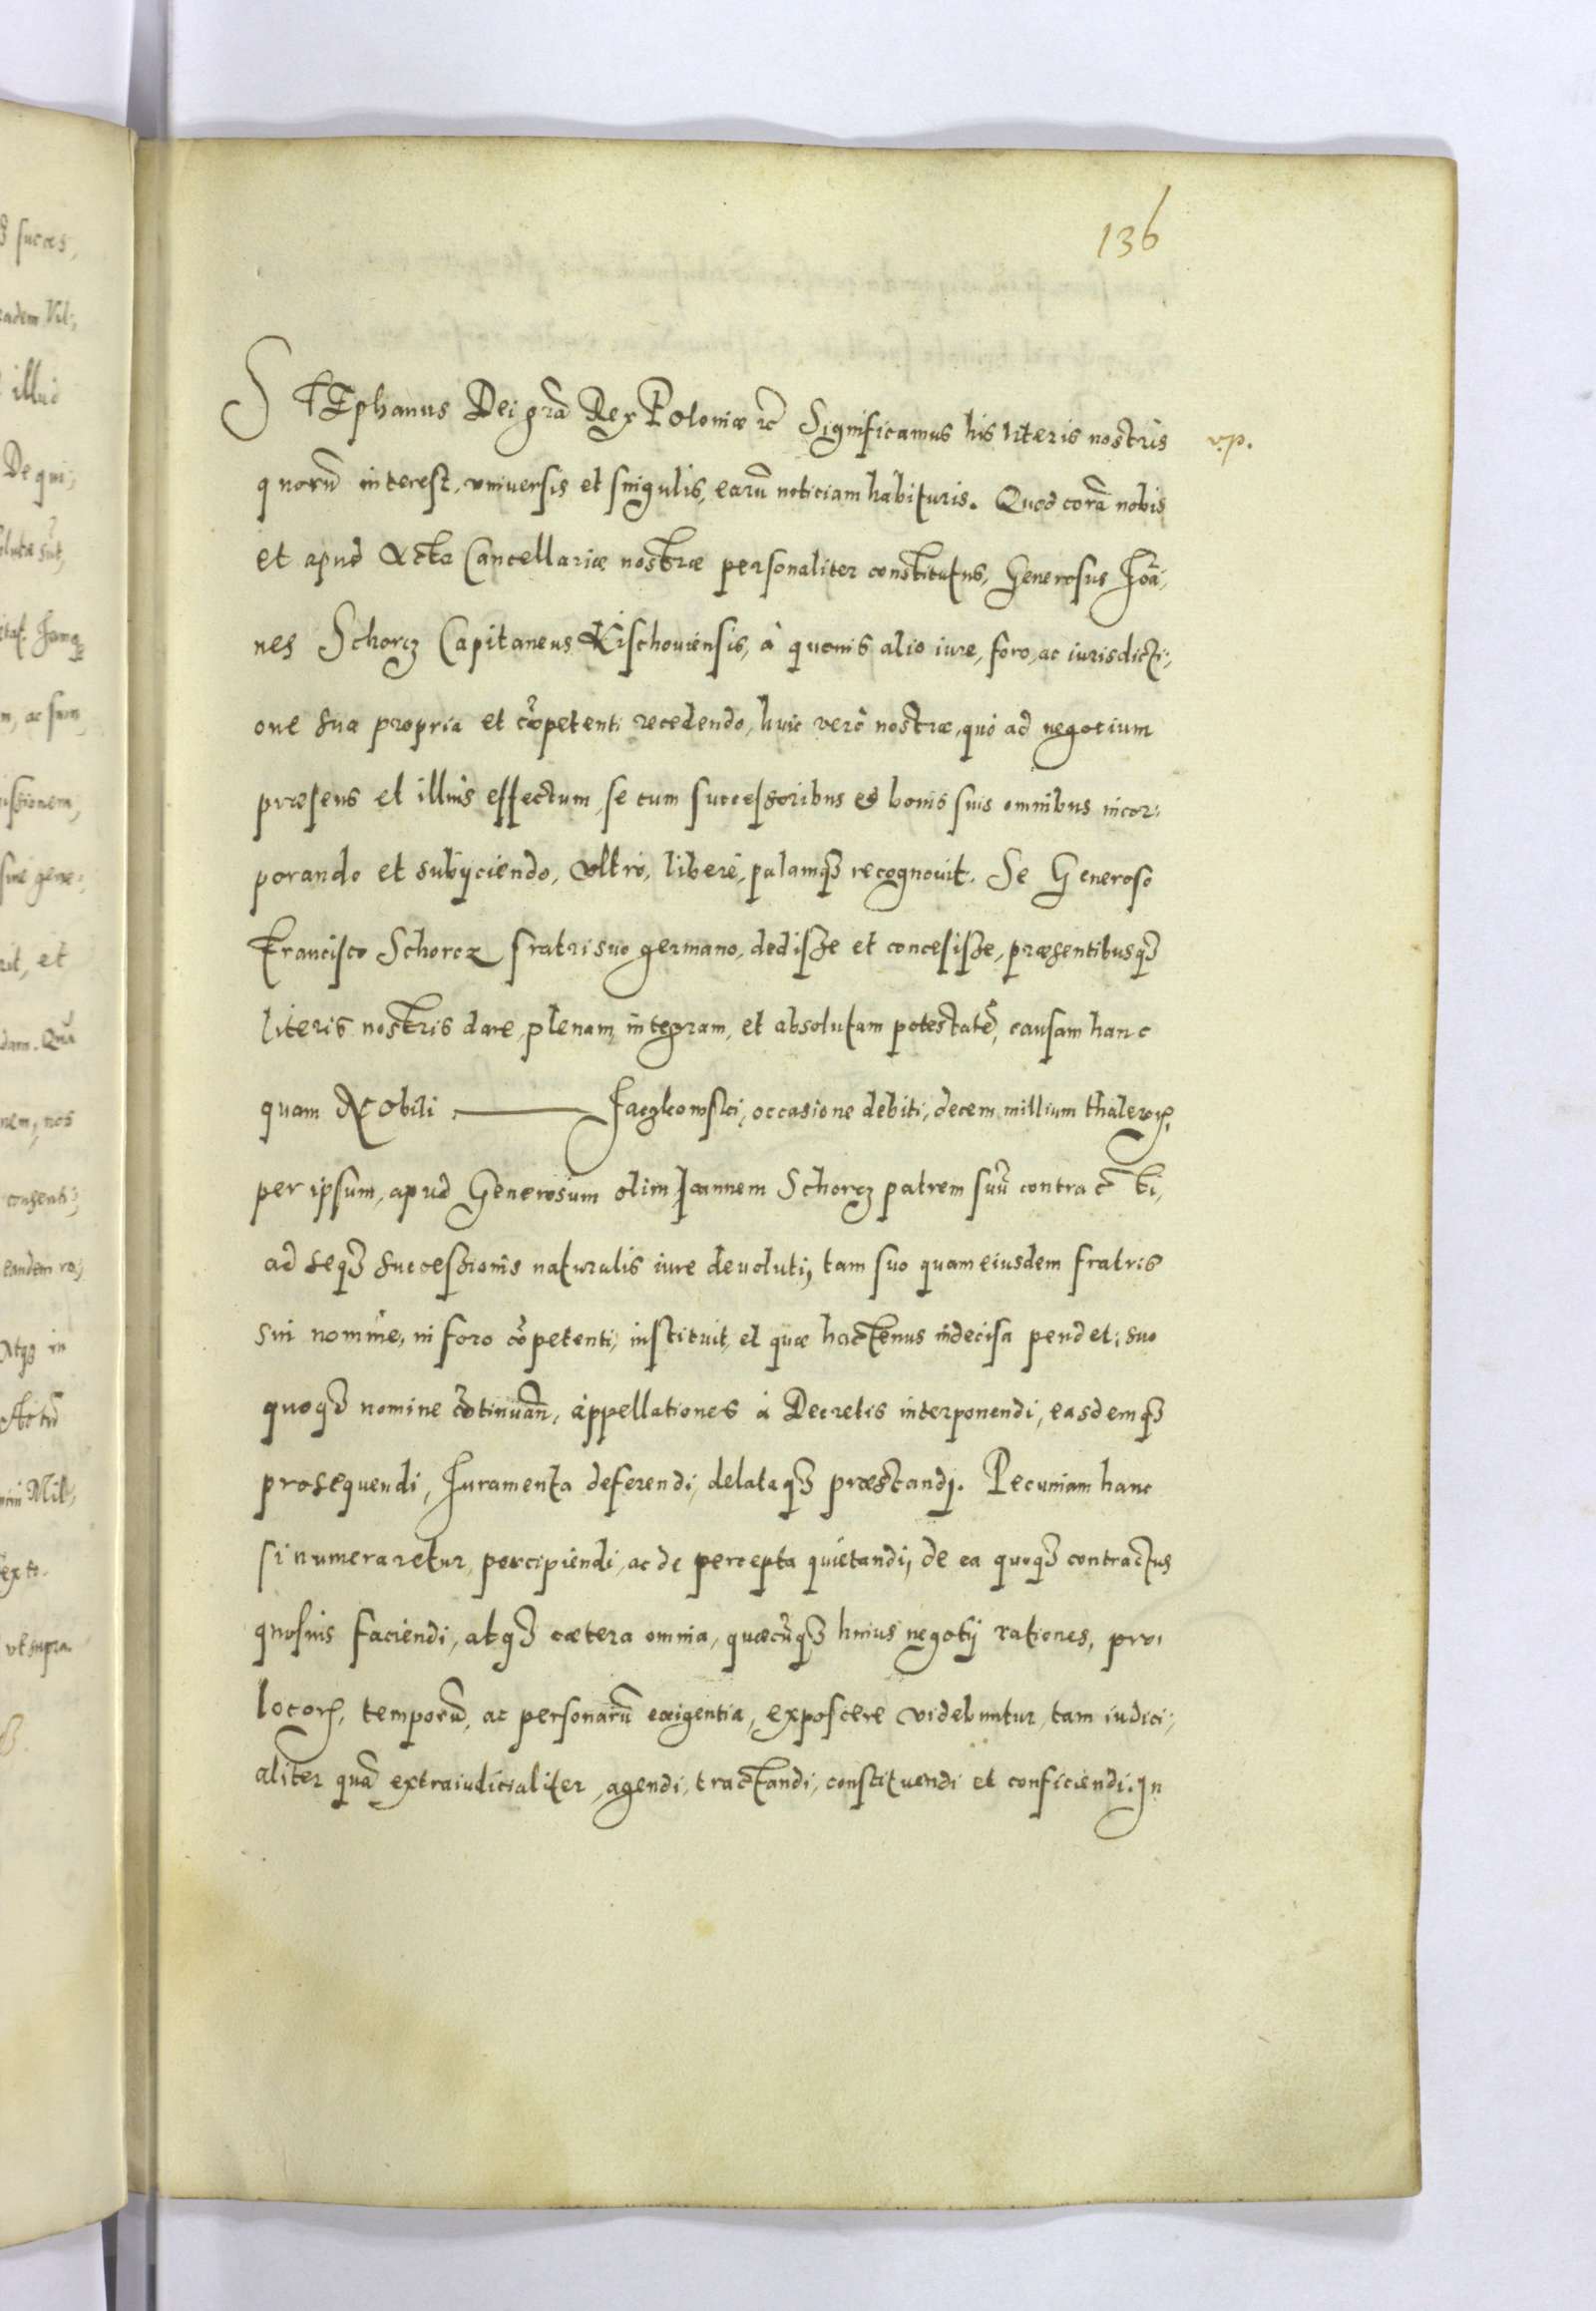 136
STEphanus Dei grã Rex Poloniæ rc Significamus his literis nostris
v.p.
quorũ interest, vniuersis et singulis, earũ noticiam habituris. Quod corã nobis
et apud Acta Cancellariæ nostræ personaliter constitutus, Generosus Joã,
nes Schorcz Capitaneus Kischouiensis, à quouis alio iure, foro, ac iurisdicti,
one sua propria et cõpetenti recedendo, huic verò nostræ, quò ad negotium
præsens et illius effectum se cum successoribus et bonis suis omnibus incor,
porando et subijciendo, vltrò, liberè, palamq₃ recognouit. Se Generoso
Francisco Schorcz fratri suo germano, dedisse et concesisse, præsentibusq₃
literis nostris dare, plenam, integram, et absolutam potestatẽ, causam hanc
quam Nobili ——— Jaczkowski, occasione debiti, decem millium thaleroꝝ,
per ipsum, apud Generosum olim Joannem Schorcz patrem suũ contracti,
ad seq₃ successionis naturalis iure deuoluti, tam suo quam eiusdem fratris
sui nomine, in foro cõpetenti, instituit, et quæ hactenus indecisa pendet, suo
quoq₃ nomine cõtinuañ, appellationes à Decretis interponendi, easdemq₃
prosequendi, Juramenta deferendi, delataq₃ præstandi. Pecuniam hanc
si numeraretur, percipiendi, ac de percepta quietandi, de ea quoq₃ contractus
quosuis faciendi, atq₃ cætera omnia, quæcũq₃ huius negotij rationes, pro,
locoꝝ, temporũ, ac personarũ exigentia, exposcere videbuntur, tam iudici,
aliter quã extraiudicialiter, agendi, tractandi, constituendi et conficiendi. In